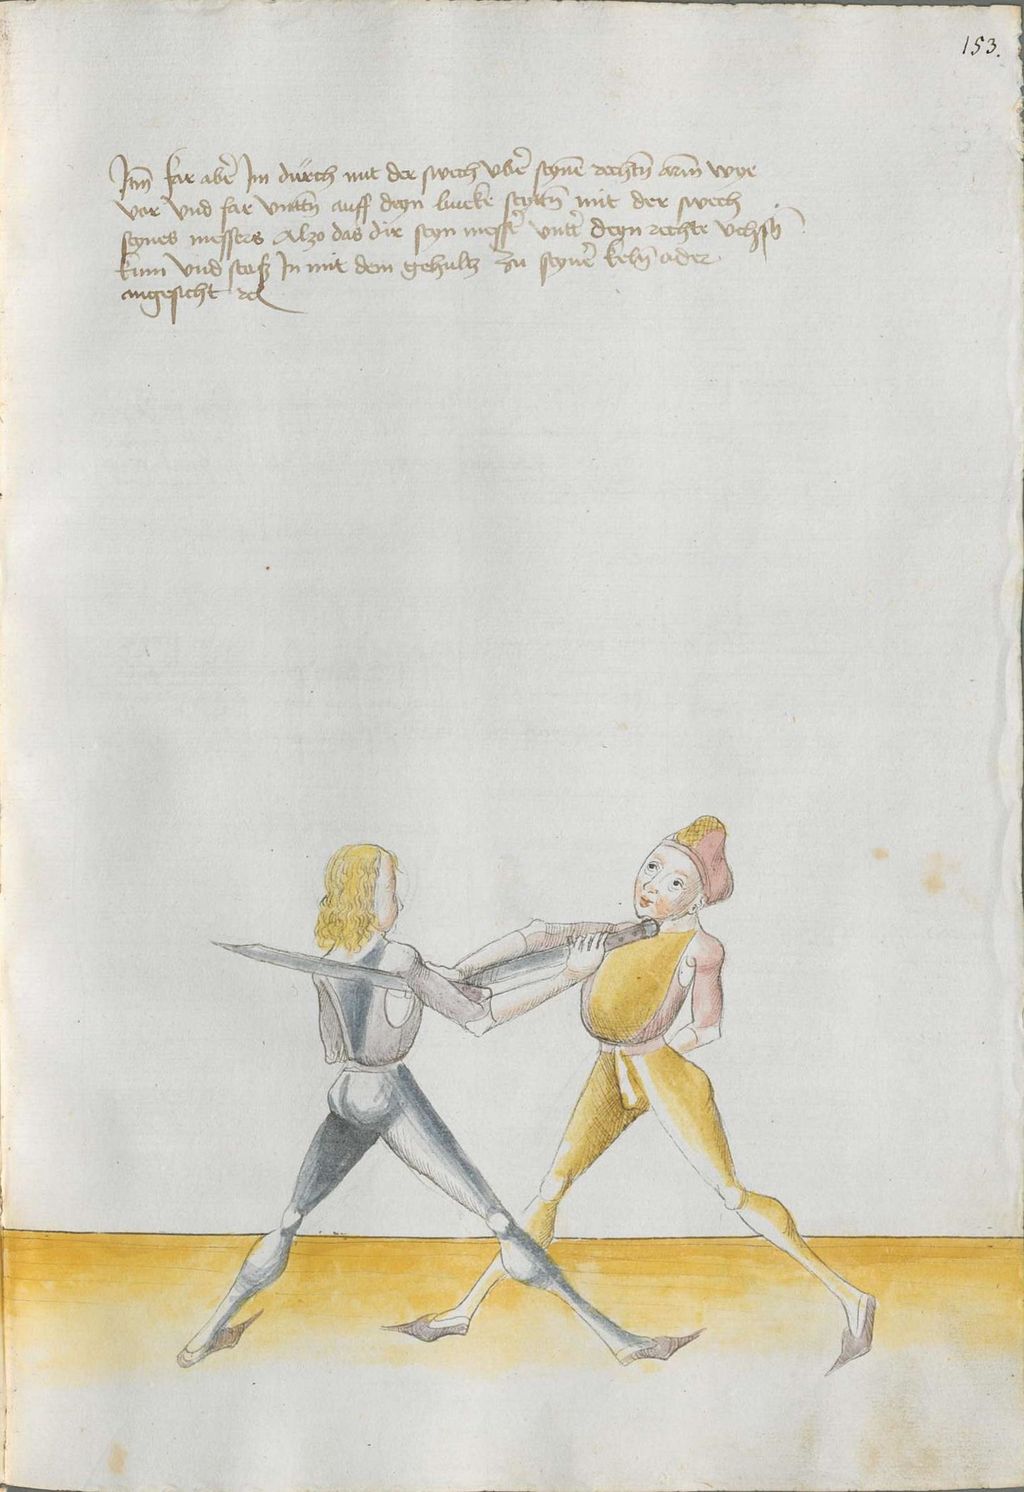 153.
Itm̄ far aber̄ Im dürch mit der swech vber̄ seynē rechtn̄ arm̄ wye
vor vnd far vnttn̄ auff deyn lincke seyttn̄ mit der swech
seynes messers Alzo das dir seyn messer̄ vntter̄ deyn rechte vchsn̄
kum vnd stoß In mit dem gehultz zu seyner̄ keln̄ ader
angesicht